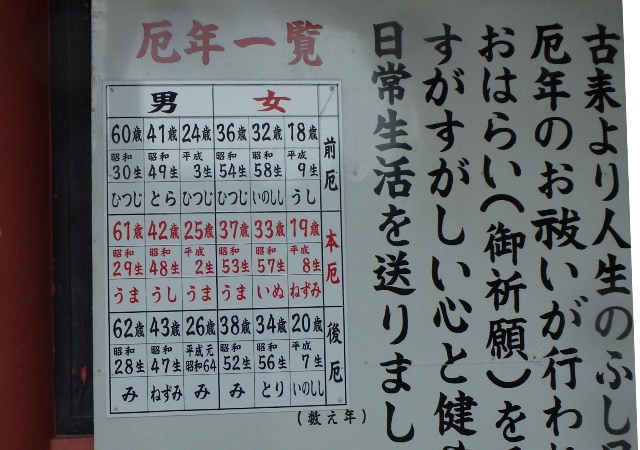 古来より人生のふし
厄年のお祓いが行われ
おはらい(御祈願)を
すがすがしい心と健
日常生活を送りまし
厄年一覧
男 女
60歳 41歳 24歳 36歳 32歳 18歳 前厄
昭和30生 昭和49生 平成3生 昭和54生 昭和58生 平成9生
ひつじ とら ひつじ ひつじ いのしし うし
61歳 42歳 25歳 37歳 33歳 19歳 本厄
昭和29生 昭和48生 平成2生 昭和53生 昭和57生 平成8生
うま うし うま うま いぬ ねずみ
62歳 43歳 26歳 38歳 34歳 20歳 後厄
昭和28生 昭和47生 平成元昭和64 昭和52生 昭和56生 平成7生
み ねずみ み み とり いのしし
(数え年)